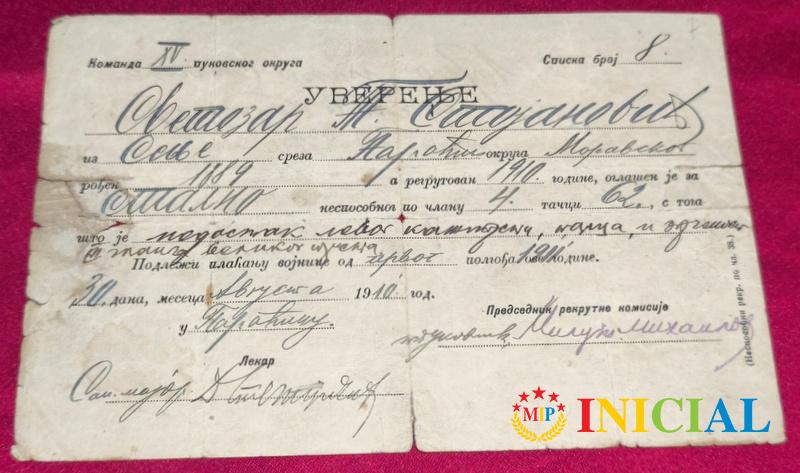 Команда XV. пуковског округа Списка број 8.
УВЕРЕЊЕ
Светозар Т. Стојановић
из Сење среза Параћин округа Моравског
рођен 1889 а регрутован 1910. године, оглашен је за
стално неспособног по члану 4. тачци 62., с тога
што је недостак левог
великог
Подлежи плаћању војнице од првог полгођа ове 1911. године.
30. дана, месеца Августа 1910. год.
у Параћину.
Председник рекрутне комисије
пуковник, Михаилов
Лекар
Сан. мајор
(Неспособни рекр. по чл. 38.)
MIP INICIAL